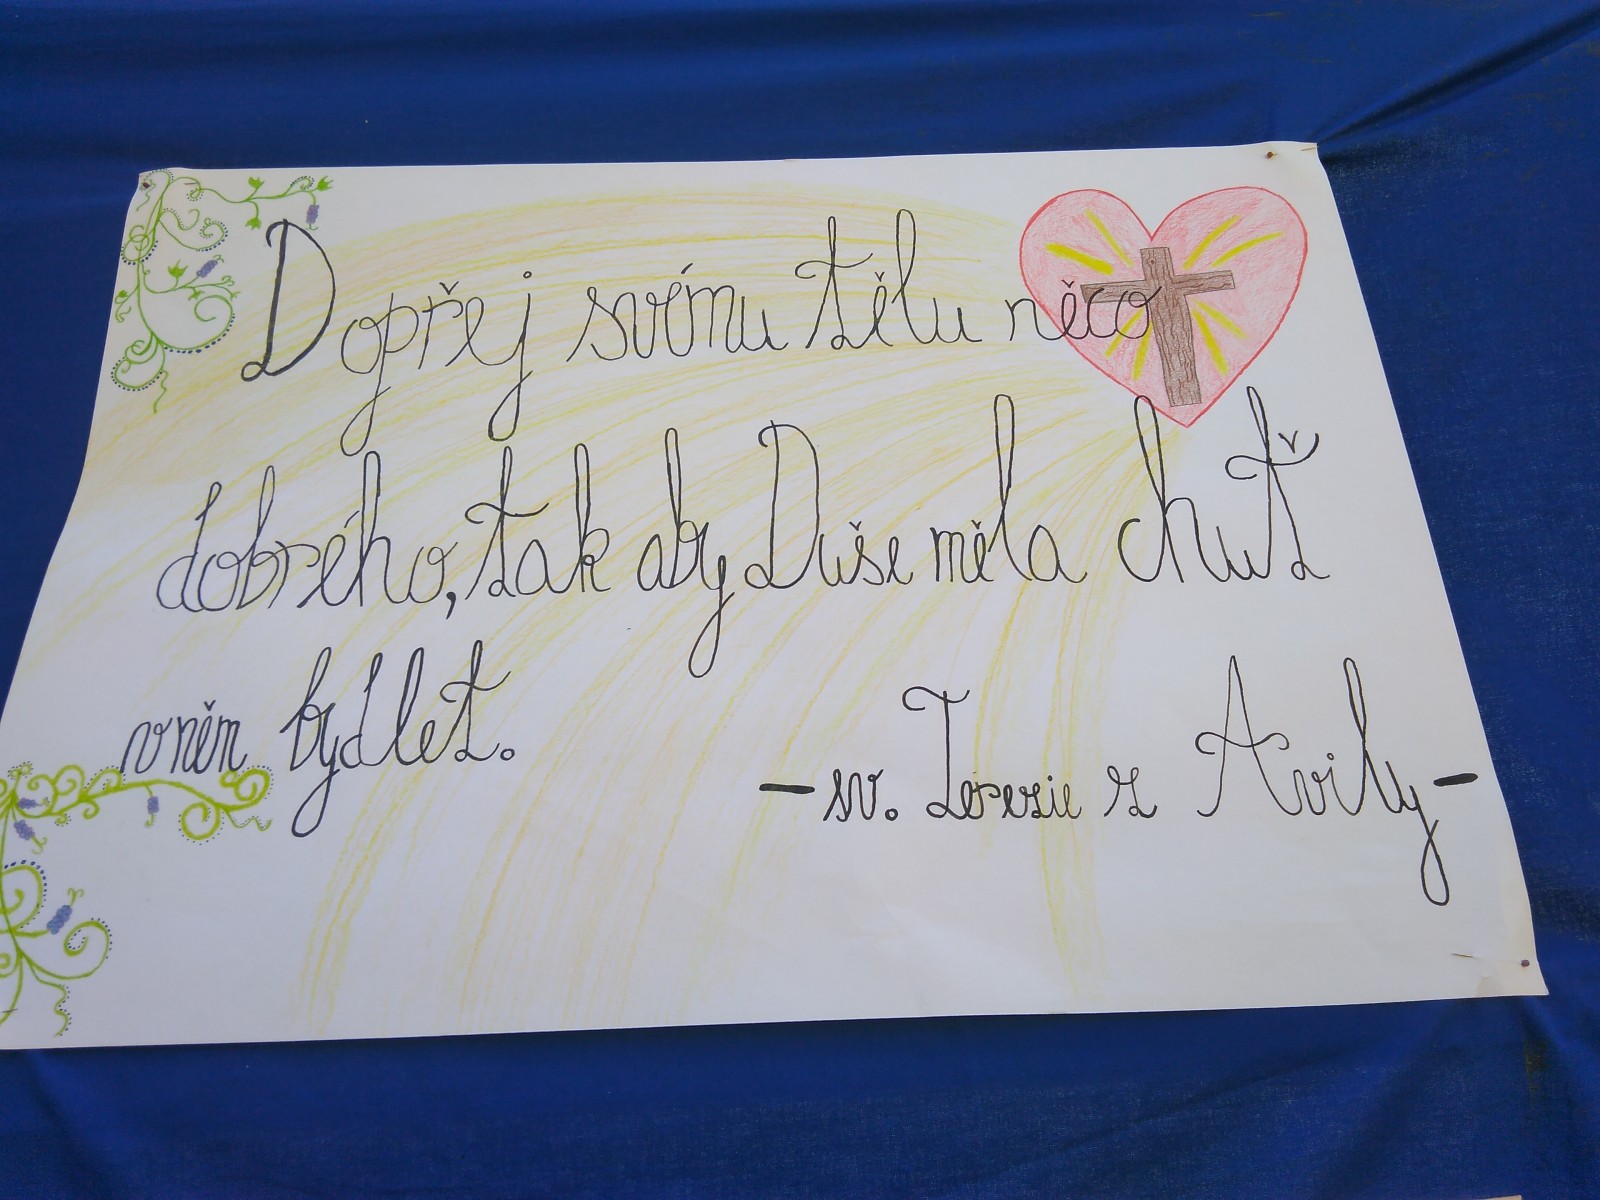 Dopřej svímu tělu něco
dobrého, tak aby Duše měla chuť
v něm bydlet.
- sv. Terezie z Avily -